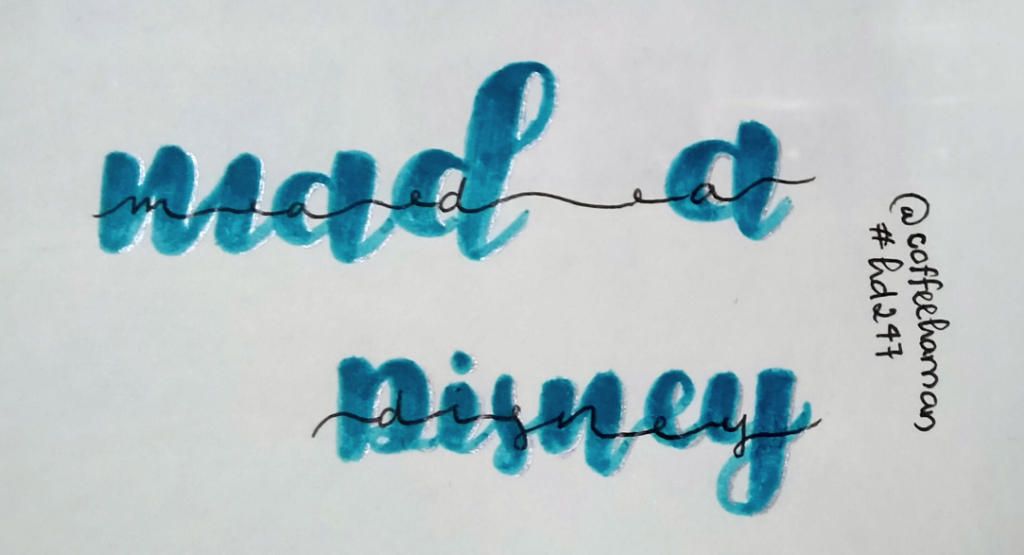 mad a
mad a
Disney
disney
@coffeeharman
#hd247